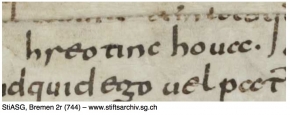 hreotinc houec.
dquid ego uel pect
StiASG, Bremen 2r (744) – www.stiftsarchiv.sg.ch